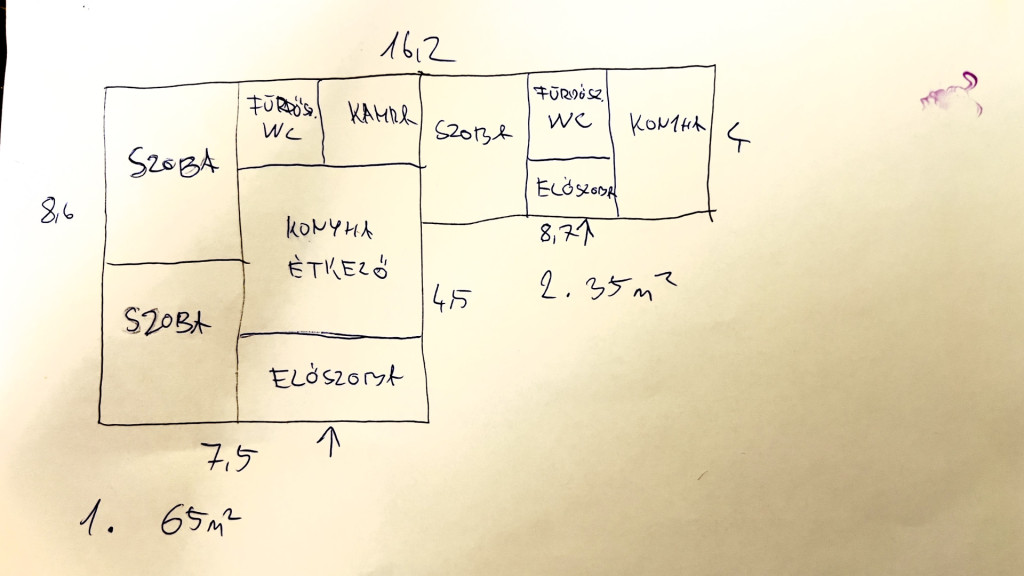 16,2
FÜRDŐSZ.
WC
KAMRA
SZOBA
FÜRDŐSZ.
WC
KONYHA
4
SZOBA
ELŐSZOBA
8,6
KONYHA
ÉTKEZŐ
8,7
4,5
2. 35m²
SZOBA
ELŐSZOBA
7,5
1. 65m²